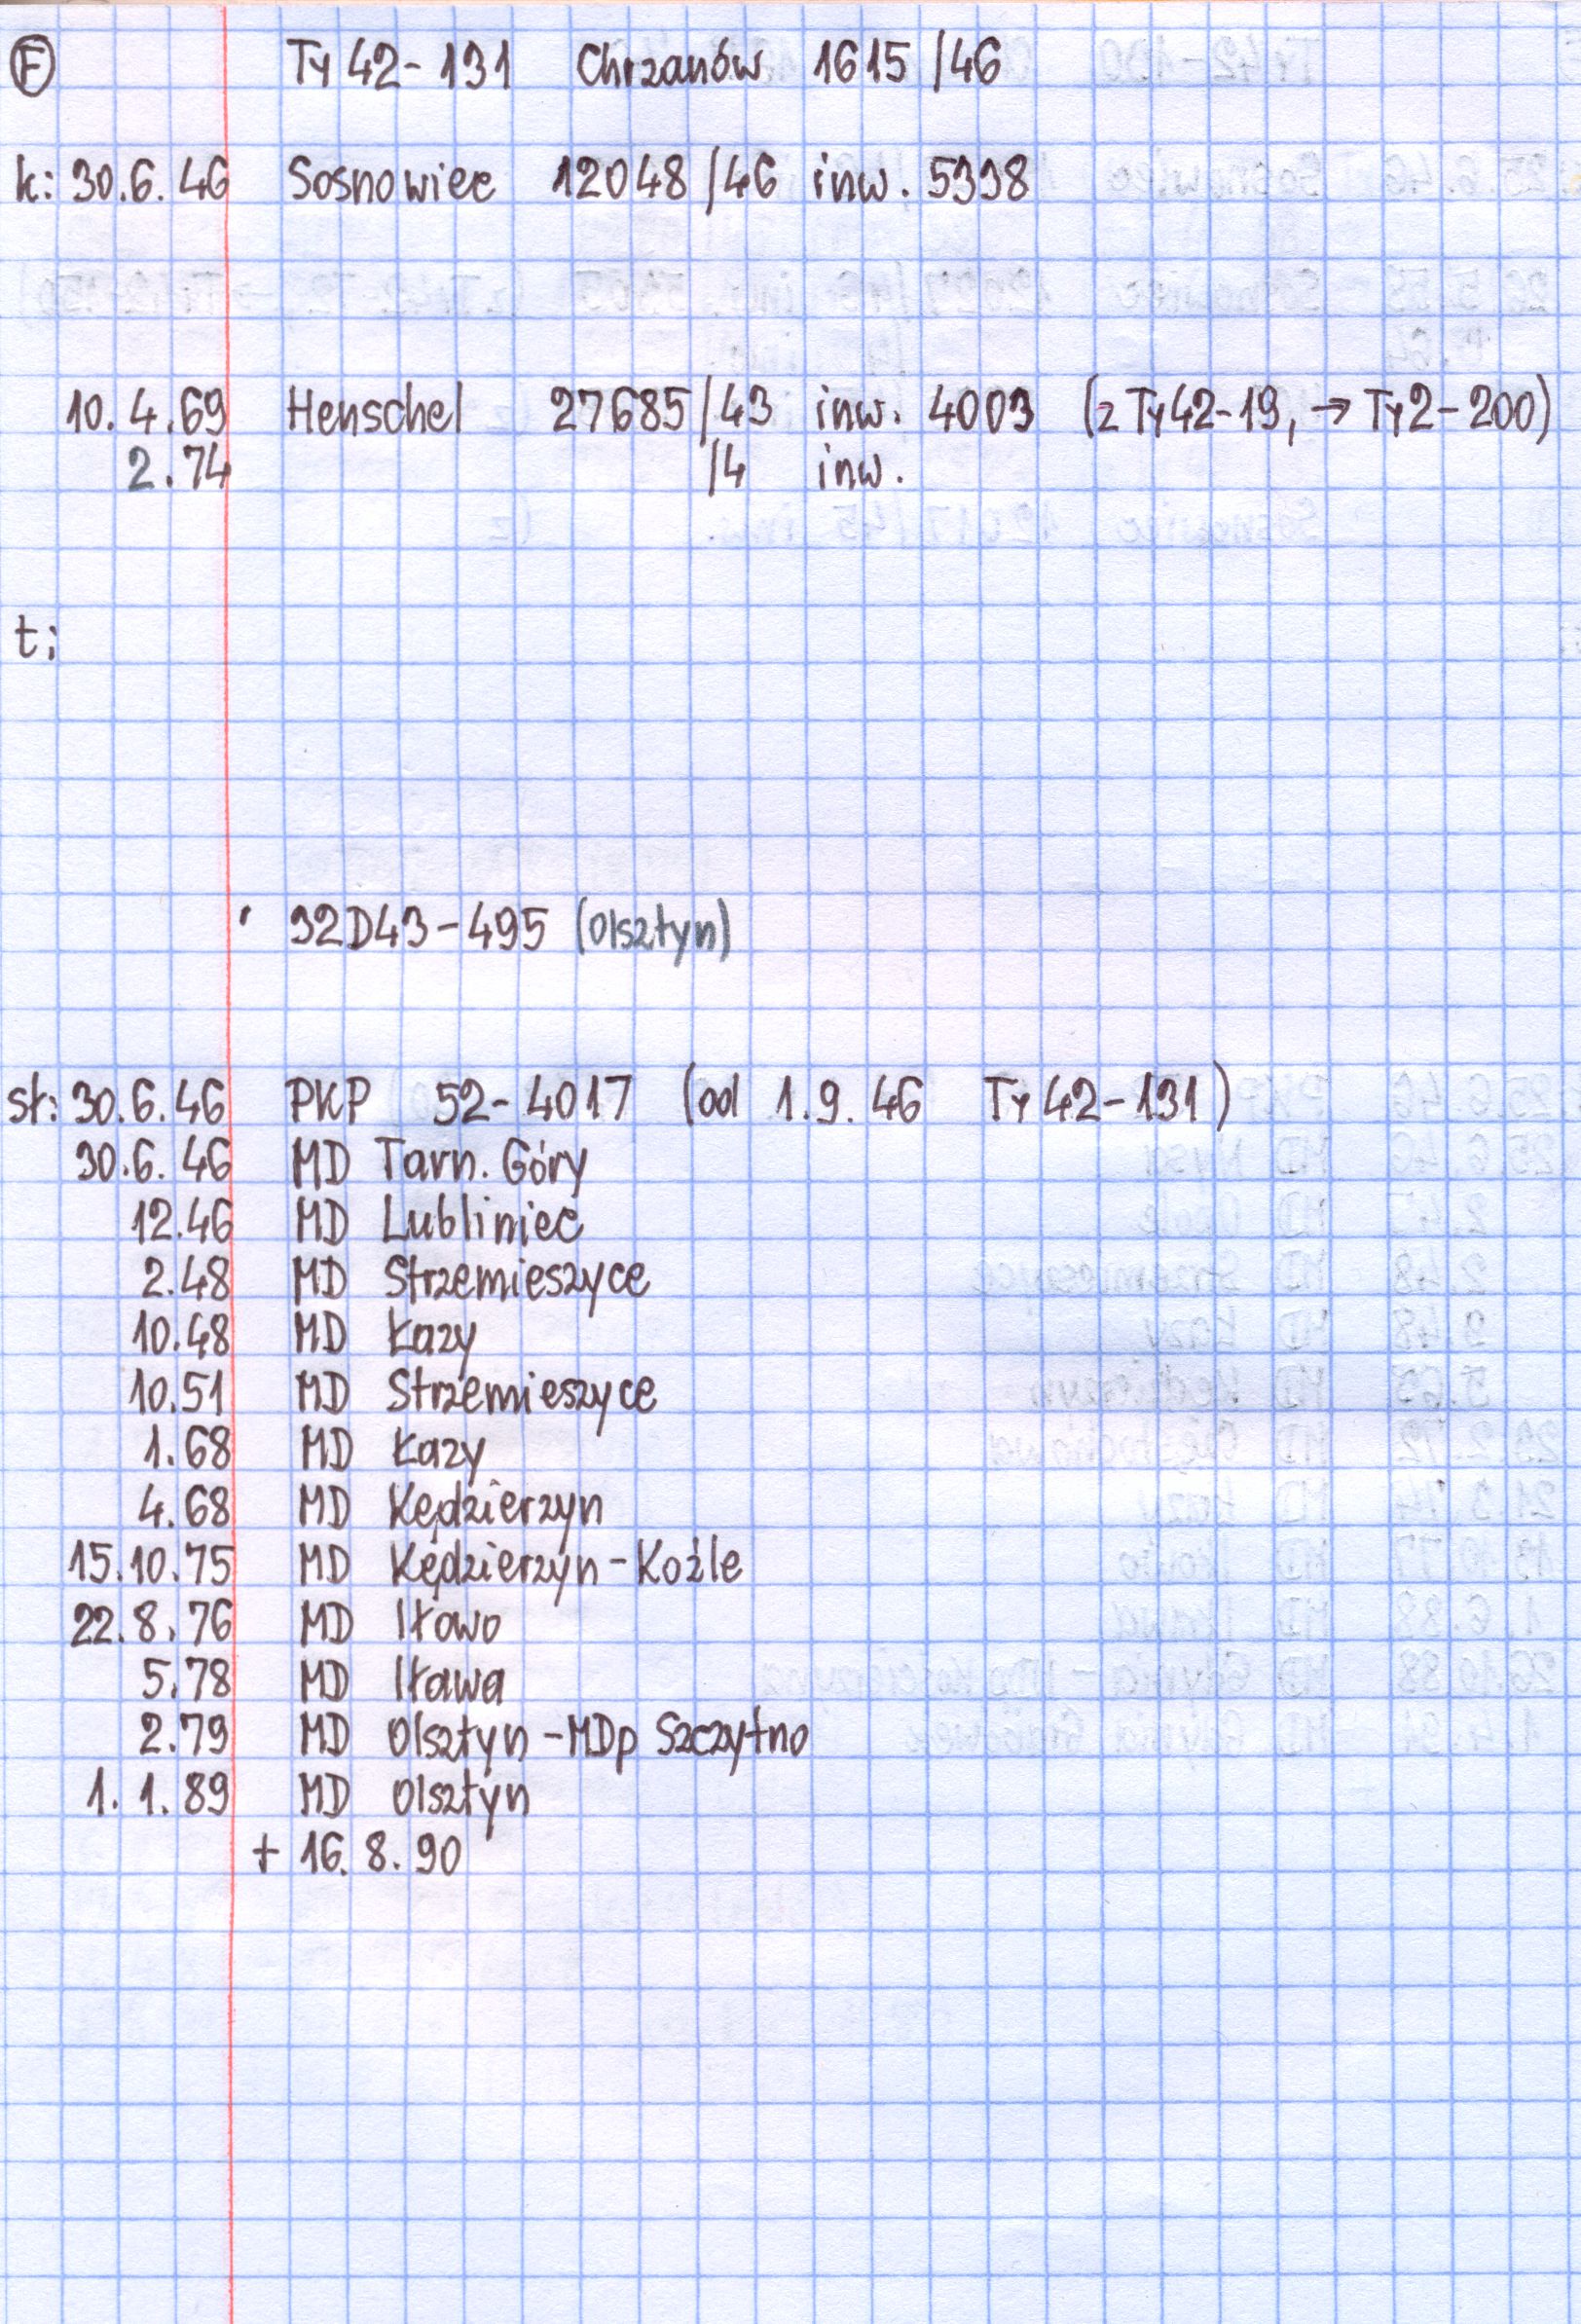 F Ty42-131 Chrzanów 1615/46
k: 30.6.46 Sosnowiec 12048/46 inw. 5338
10.4.69 Henschel 27685/43 inw. 4003 (z Ty42-19, → Ty2-200)
2.74 /4 inw.
t:
32D43-495 (Olsztyn)
st: 30.6.46 PKP 52-4017 (od 1.9.46 Ty42-131)
30.6.46 MD Tarn. Góry
12.46 MD Lubliniec
2.48 MD Strzemieszyce
10.48 MD Łazy
10.51 MD Strzemieszyce
1.68 MD Łazy
4.68 MD Kędzierzyn
15.10.75 MD Kędzierzyn-Koźle
22.8.76 MD Iłowo
5.78 MD Iława
2.79 MD Olsztyn-MDp Szczytno
1.1.89 MD Olsztyn
+ 16.8.90